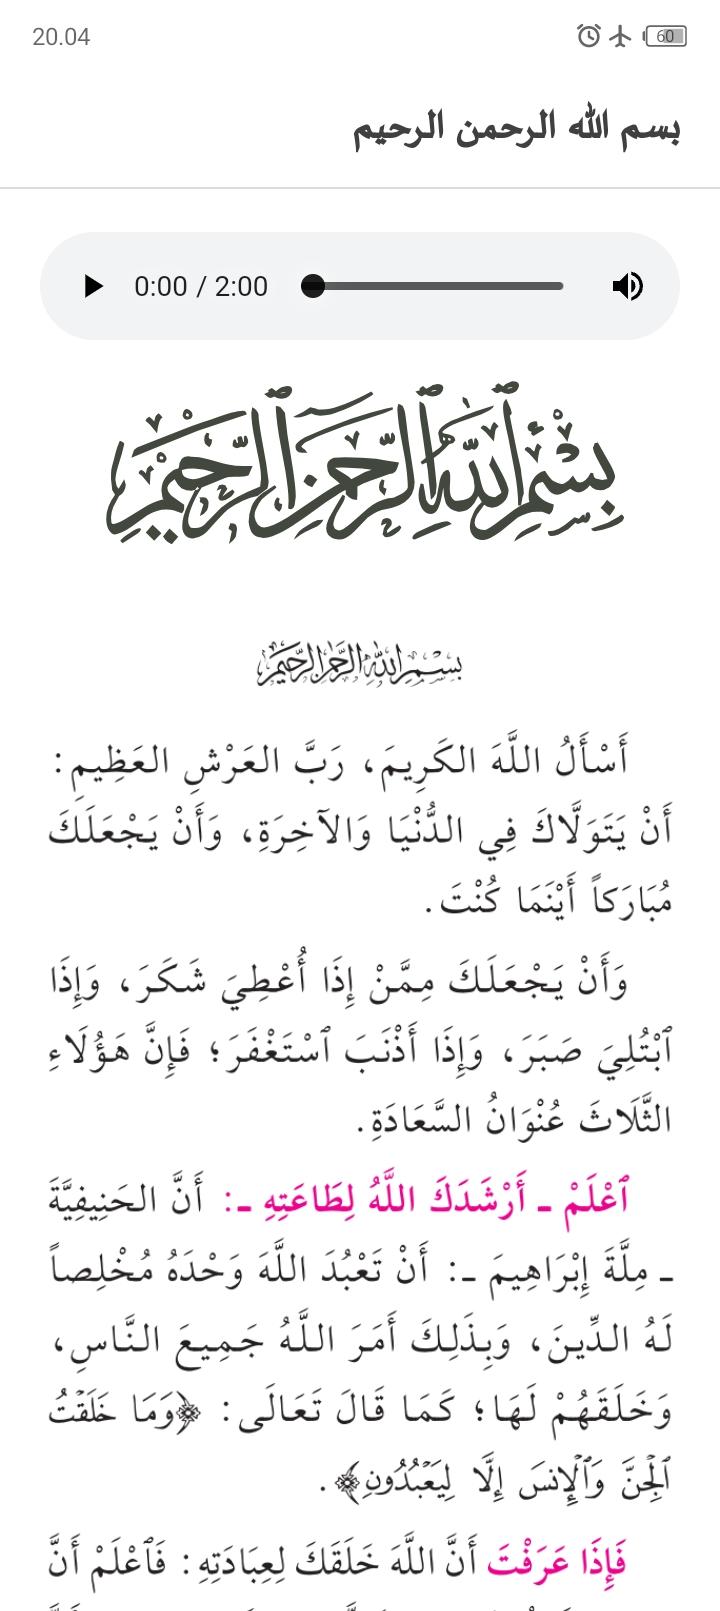 20.04
60
بسم الله الرحمن الرحيم
0:00 / 2:00
بِسْمِ ٱللَّهِ ٱلرَّحْمَٰنِ ٱلرَّحِيمِ
بِسْمِ اللَّهِ الرَّحْمَٰنِ الرَّحِيمِ
أَسْأَلُ اللَّهَ الكَرِيمَ، رَبَّ العَرْشِ العَظِيمِ:
أَنْ يَتَوَلَّاكَ فِي الدُّنْيَا وَالآخِرَةِ، وَأَنْ يَجْعَلَكَ
مُبَارَكاً أَيْنَمَا كُنْتَ.
وَأَنْ يَجْعَلَكَ مِمَّنْ إِذَا أُعْطِيَ شَكَرَ، وَإِذَا
ٱبْتُلِيَ صَبَرَ، وَإِذَا أَذْنَبَ ٱسْتَغْفَرَ؛ فَإِنَّ هَؤُلَاءِ
الثَّلَاثَ عُنْوَانُ السَّعَادَةِ.
ٱعْلَمْ ـ أَرْشَدَكَ اللَّهُ لِطَاعَتِهِ ـ: أَنَّ الحَنِيفِيَّةَ
ـ مِلَّةَ إِبْرَاهِيمَ ـ: أَنْ تَعْبُدَ اللَّهَ وَحْدَهُ مُخْلِصاً
لَهُ الدِّينَ، وَبِذَلِكَ أَمَرَ اللَّهُ جَمِيعَ النَّاسِ،
وَخَلَقَهُمْ لَهَا؛ كَمَا قَالَ تَعَالَى: ﴿وَمَا خَلَقْتُ
ٱلْجِنَّ وَٱلْإِنسَ إِلَّا لِيَعْبُدُونِ﴾.
فَإِذَا عَرَفْتَ أَنَّ اللَّهَ خَلَقَكَ لِعِبَادَتِهِ: فَٱعْلَمْ أَنَّ